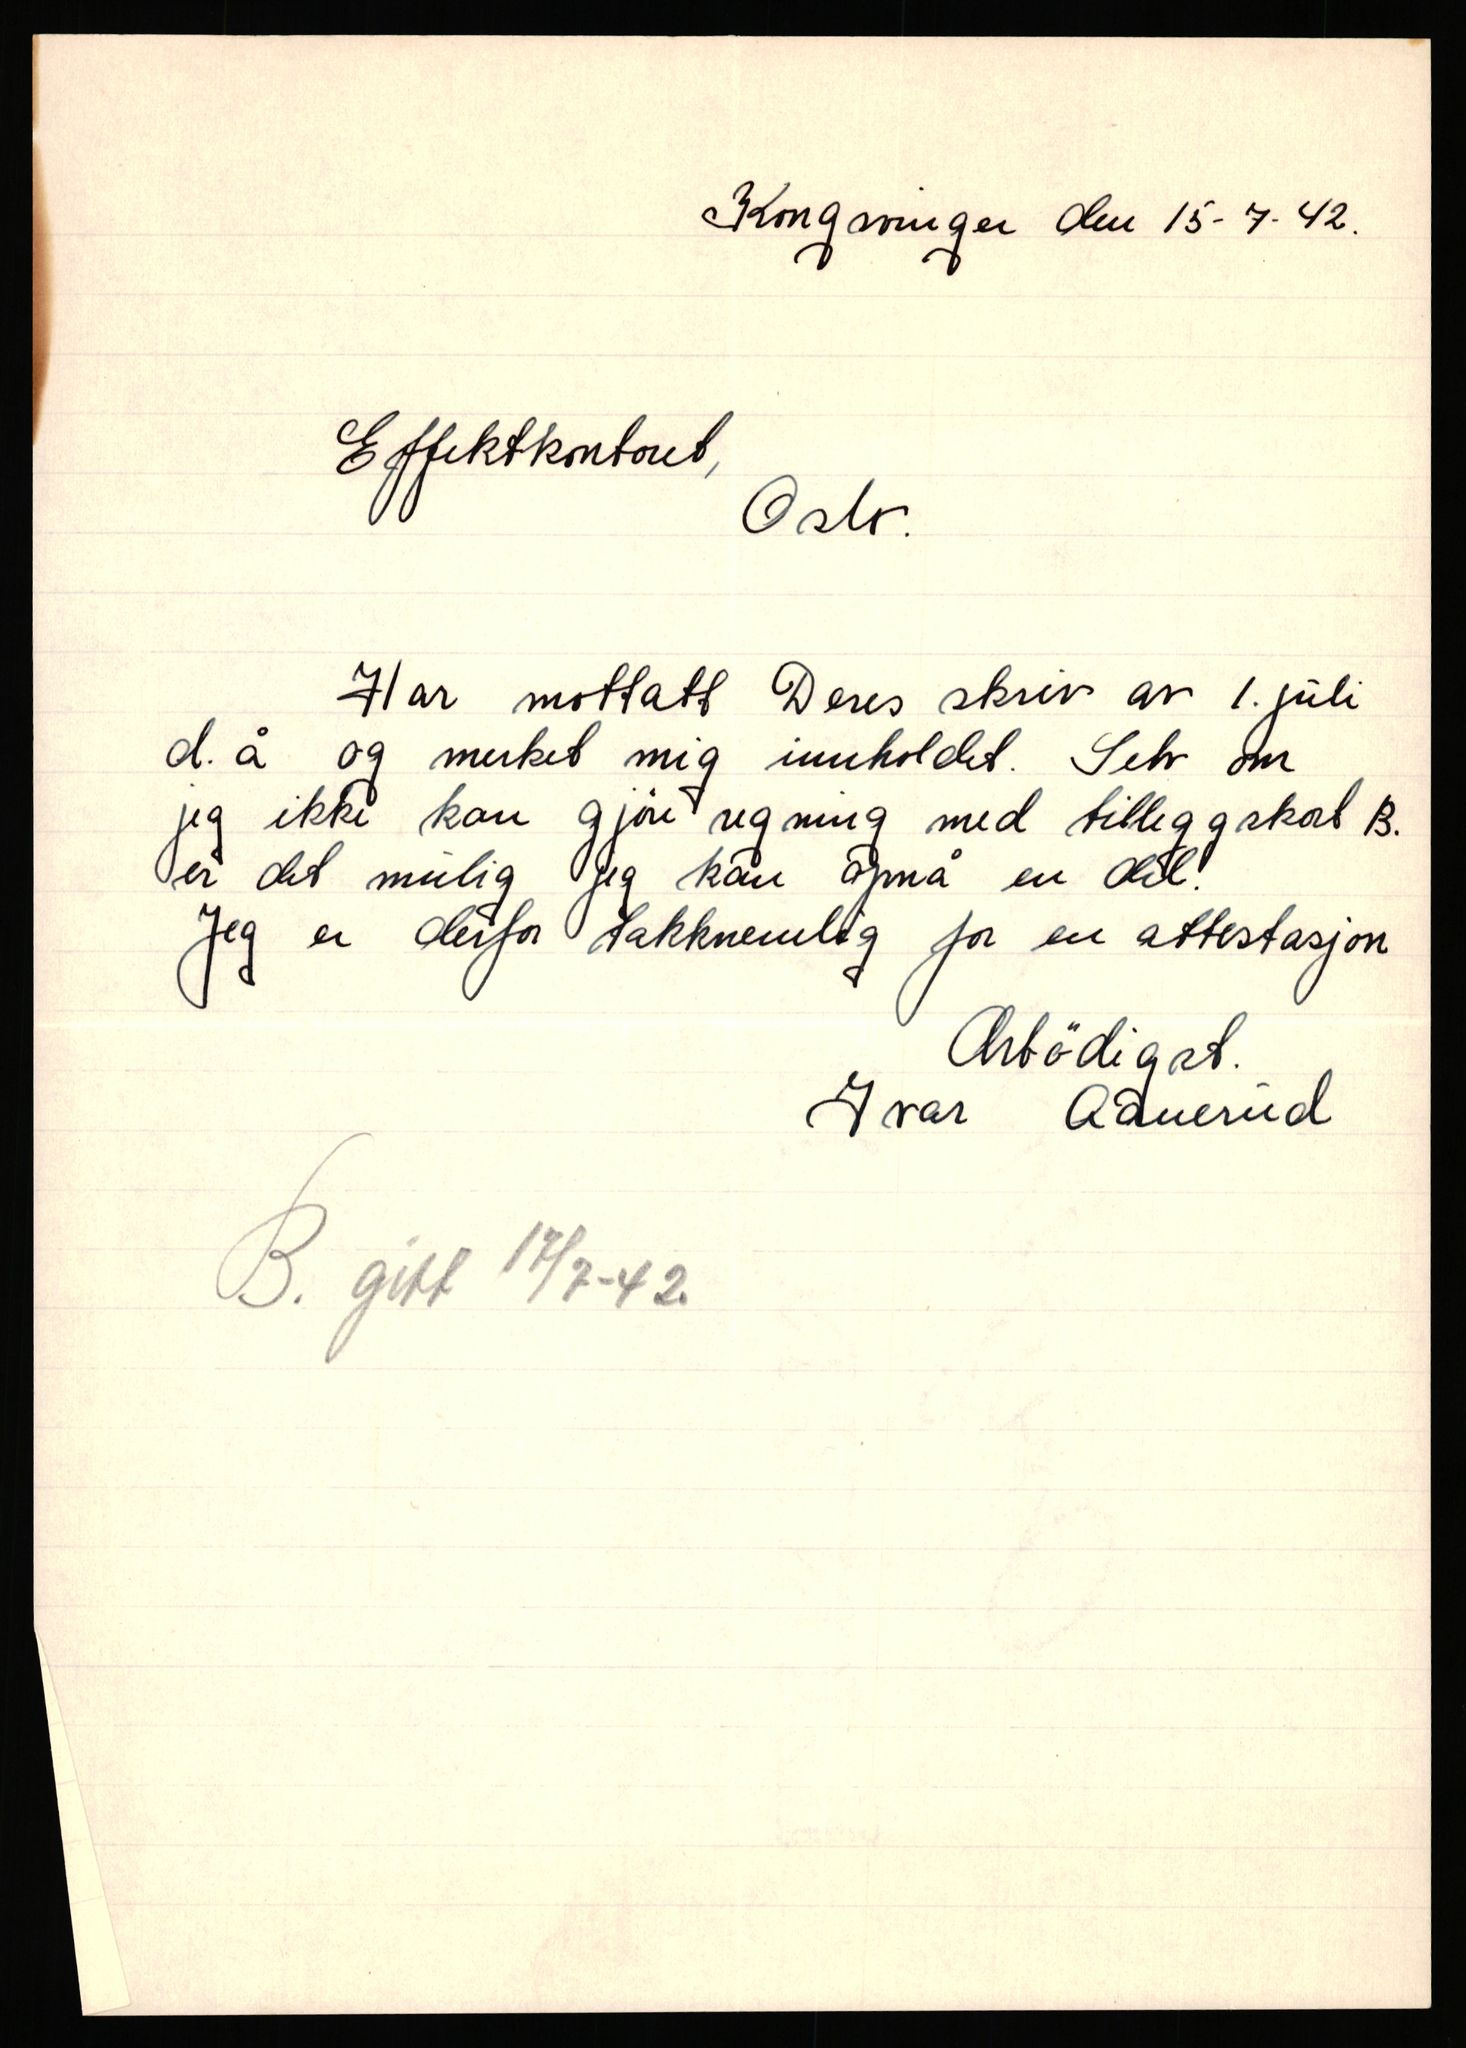 Kongsvinger den 15-7-42.
Effektkontoret,
Oslo.
Har mottatt Deres skriv av 1. juli
d. å og merket mig innholdet. Selv om
jeg ikke kan gjöre regning med tilleggskort B.
er det mulig jeg kan opnå en del.
Jeg er derfor takknemlig for en attestasjon
Ærbödigst.
Ivar Aanerud
B. gitt 17/7-42.